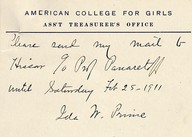 AMERICAN COLLEGE FOR GIRLS
ASS'T TREASURER'S OFFICE
Please send my mail to
Hissar c/o Prof Panaretoff
until Saturday Feb 25-1911
Ida W. Prime